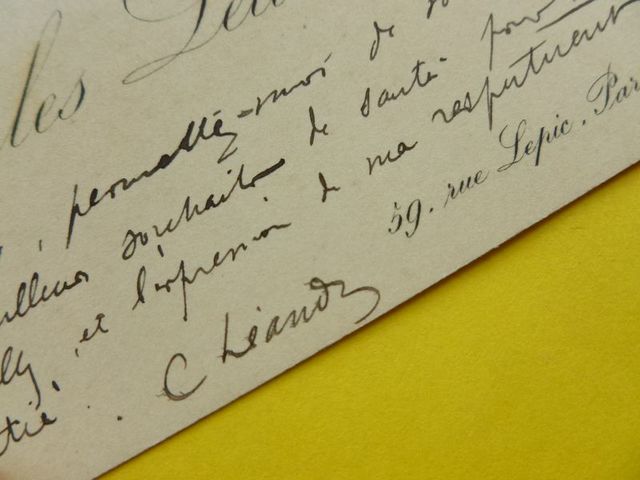 les Léa
, permettez-moi de
meilleurs souhaits de santé pour
et l'expression de ma respectueuse
C Léandre
59. rue Lepic. Par